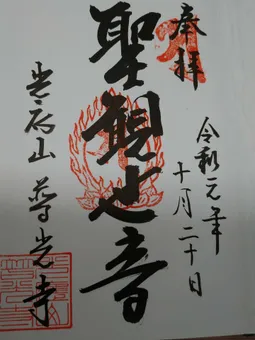 奉拝
令和元年
十月二十日
聖観世音
山 普光寺